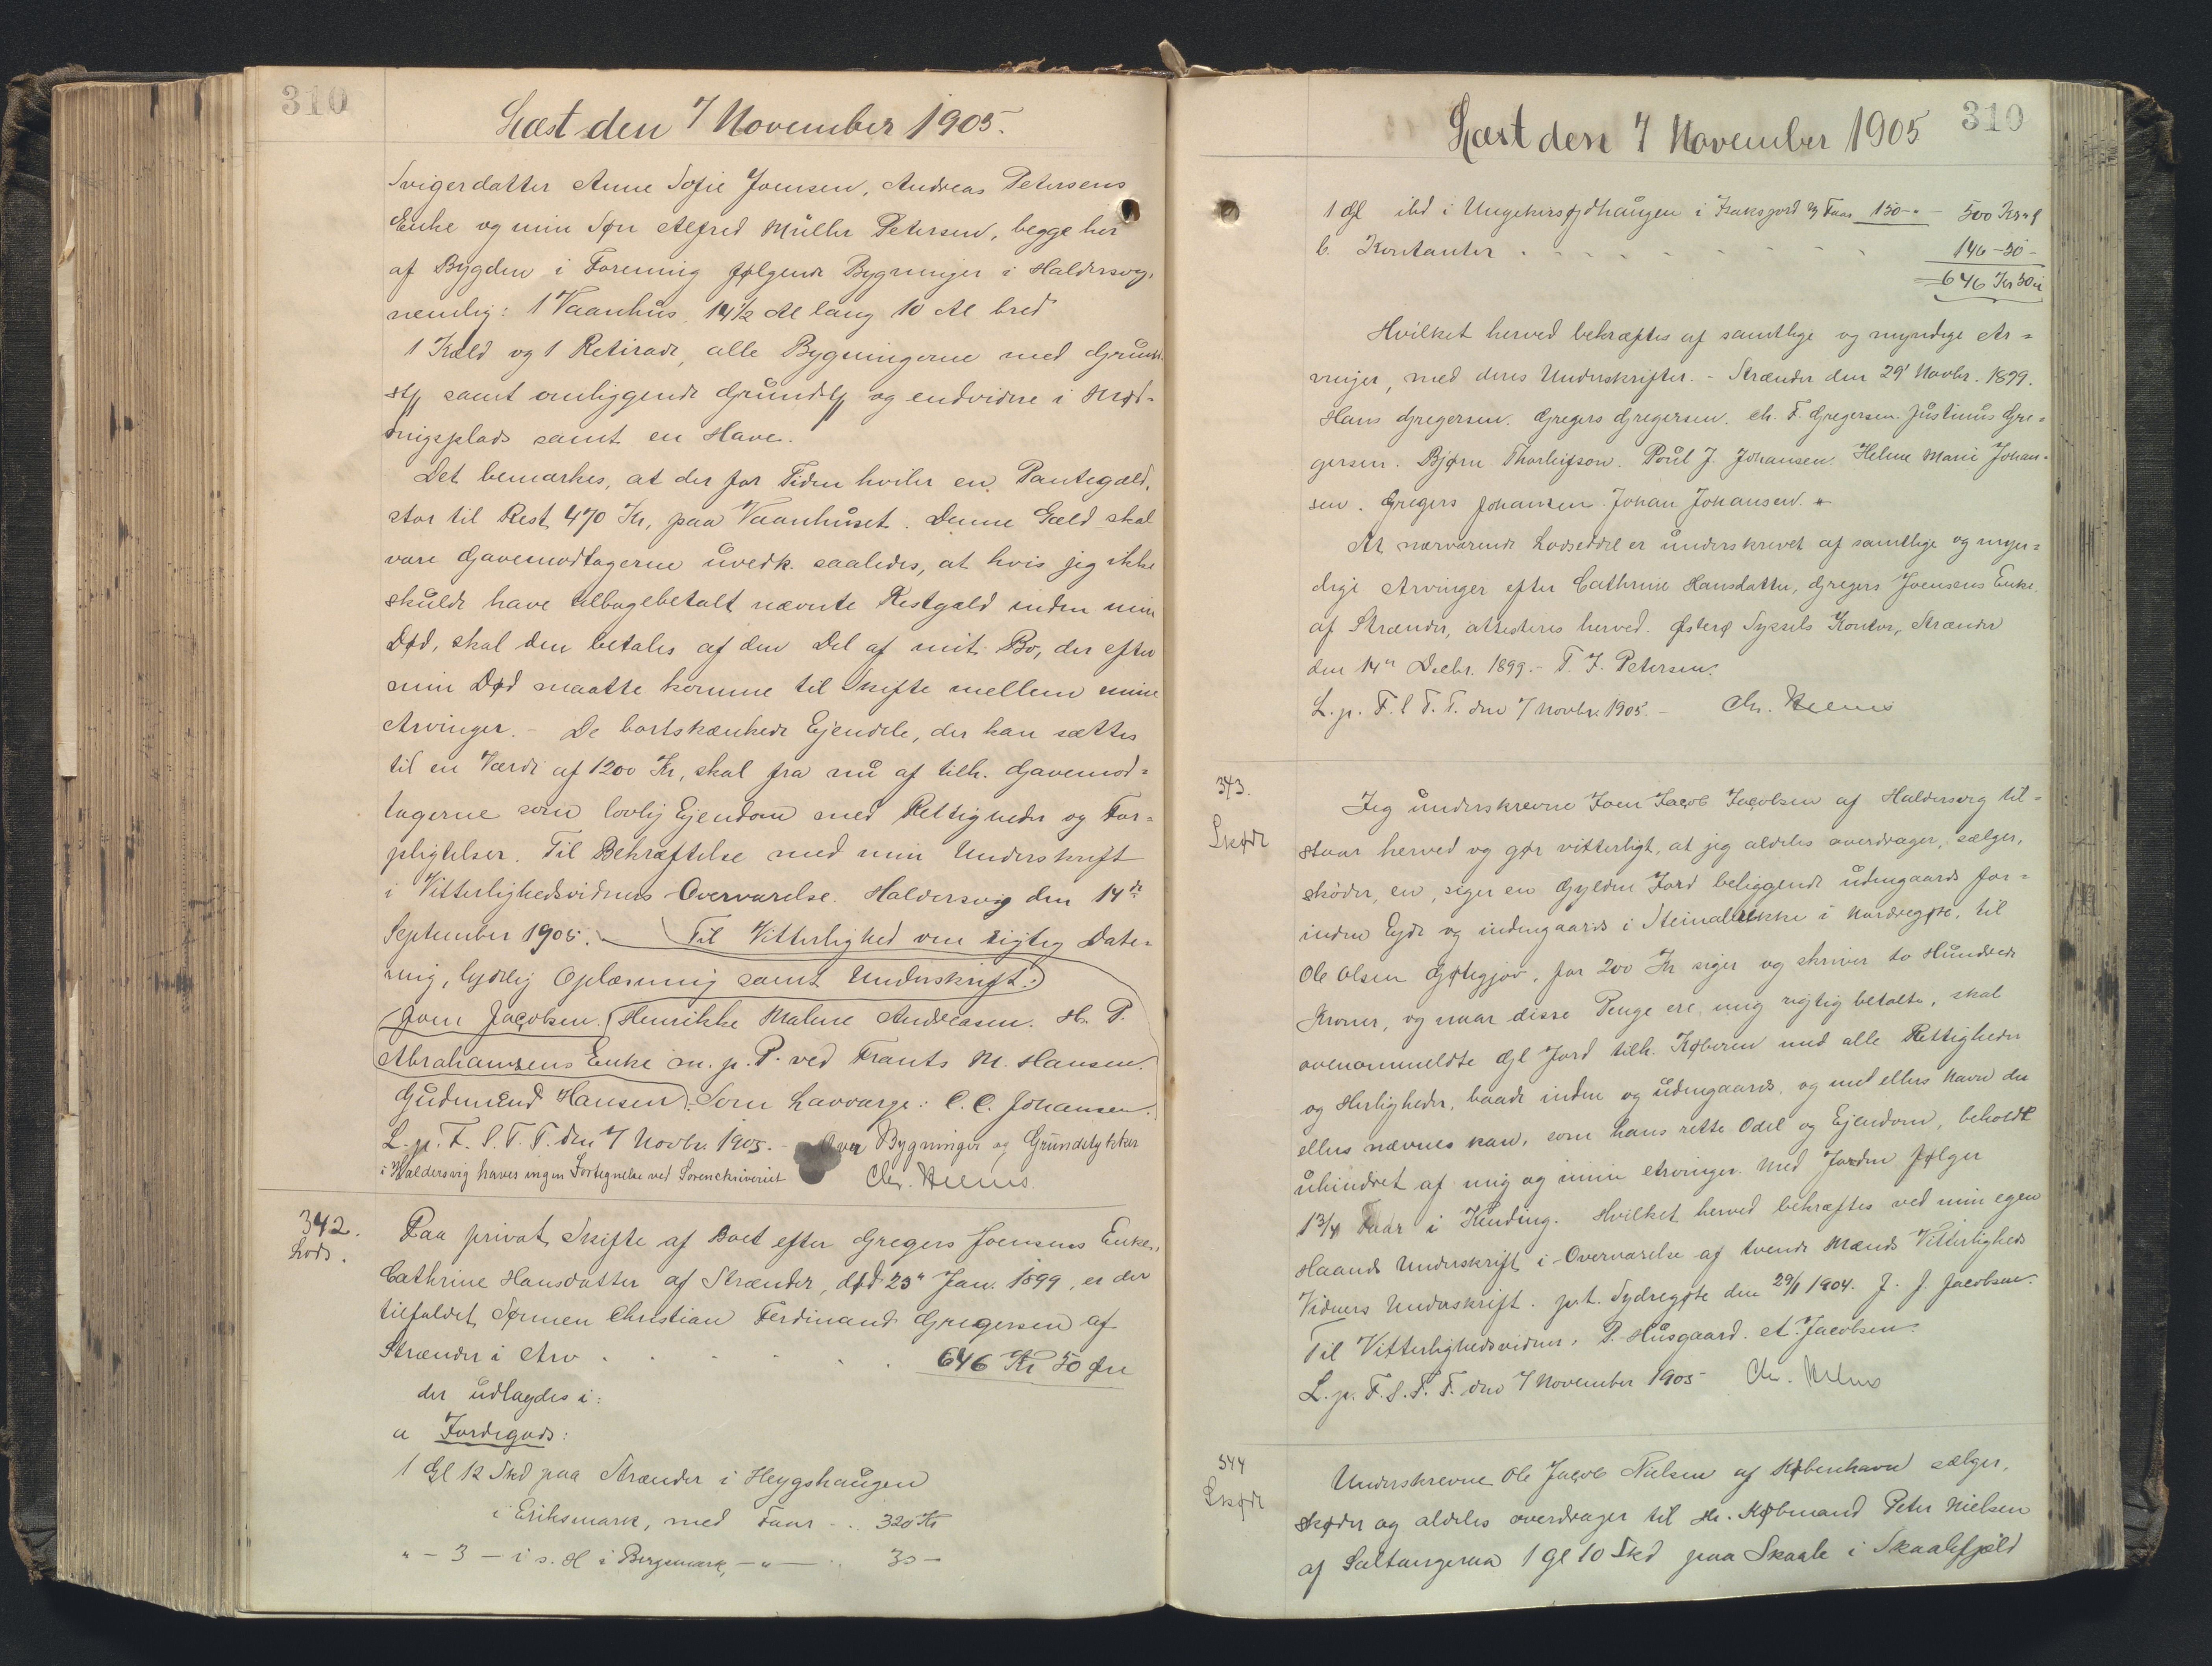 310
Læst den 7 November 1905.
Svigerdatter Anne Sofie Joensen, Andreas Petersens
Enke og min Søn Alfred Müller Petersen, begge her
af Bygden i Forening følgende Bygninger i Haldersvig,
nemlig: 1 Vaanhus, 14½ Al lang 10 Al bred
1 Kæld og 1 Retirade, alle Bygningerne med Grund-
stk samt omliggende Grundstk og endvidere i Mød-
ningsplads samt en Have.
Det bemærkes, at der for Tiden hviler en Pantegæld,
stor til Rest 470 Kr, paa Vaanhuset. Denne Gæld skal
være Gavemodtagerne uvedk. saaledes, at hvis jeg ikke
skulde have tilbagebetalt nævnte Restgæld inden min
Død, skal den betales af den Del af mit Bo, der efter
min Død maatte komme til Skifte mellem mine
Arvinger. - De bortskænkede Ejendele, der kan sættes
til en Værdi af 1200 Kr, skal fra nu af tilh. Gavemod=
tagerne som lovlig Ejendom med Rettigheder og For=
pligtelser. Til Bekræftelse med min Underskrift
i Vitterlighedsvidners Overværelse. Haldersvig den 14de
September 1905. Til Vitterlighed om rigtig Date=
ring, lydelig Oplæsning samt Underskrift:
Joen Jacobsen. Henrikke Malene Andreasen. H. P.
Abrahamsens Enke m. p. P. ved Frants M. Hansen.
Gudmund Hansen. Som Lavværge: C. C. Johansen.
L. p. F. S. T. T. den 7 Novbr. 1905. - Over Bygninger og Grundstykker
i Haldersvig haves ingen Fortegnelse ved Sorenskriveriet Chr. Helms
342.
Lods.
Paa privat Skifte af Boet efter Gregers Joensens Enke,
Cathrine Hansdatter af Strænder, død 25" Jan. 1899, er der
tilfaldet Sønnen Christian Ferdinand Gregersen af
Strænder i Arv . . . . . 646 Kr 50 Øre
der udlagdes i:
a Jordegods:
1 Gl 12 Skd paa Strænder i Heygshaugen
i Eriksmark, med Faar - . . 320 Kr
" - 3 - i s. H i Bergsmark, - " - . . 30 -
310
Læst den 7 November 1905
1 Gl ibd i Ungekersfjdhaugen i Isaksgjord 3/4 Faar 150 - " - 500 Kr " Ø
b. Kontanter . . . . . . . 146 - 50 -
646 Kr 50 Ø
Hvilket herved bekræftes af samtlige og myndige Ar=
vinger, med deres Underskrifter. - Strænder den 29' Novbr. 1899.
Hans Gregersen. Gregers Gregersen. Ch. F. Gregersen. Justinus Gre=
gersen. Bjørn Thorleifson. Poul J. Johansen. Helene Marie Johan-
sen. Gregers Johansen. Johan Johansen.
At nærværende Lodseddel er underskrevet af samtlige og myn=
dige Arvinger efter Cathrine Hansdatter, Gregers Joensens Enke
af Strænder, attesteres herved. Østerø Syssels Kontor, Strænder
den 14" Decbr. 1899. - T. J. Petersen.
L. p. F. S T. T. den 7 Novbr. 1905. - Chr. Helms
343.
Skøde
Jeg underskrevne Joen Jacob Jacobsen af Haldersvig til=
staar herved og gør vitterligt, at jeg aldeles overdrager, sælger,
skøder, en, siger en Gylden Jord beliggende udengaards for=
inden Eyde og indengaards i Steinabrekke i Nordregøte, til
Ole Olsen Gøtegjov, for 200 Kr siger og skriver to Hundrede
Kroner, og naar disse Penge ere mig rigtig betalte, skal
ovenommeldte Gl Jord tilh. Køberen med alle Rettigheder
og Herligheder, baade inden og udengaards, og med ellers Navn der
ellers nævnes kan, som hans rette Odel og Ejendom, beholdt
uhindret af mig og mine Arvinger. Med Jorden følger
1 3/4 Faar i Kending. Hvilket herved bekræftes ved min egen
Haands Underskrift i Overværelse af tvende Mænds Vitterligheds
Vidners Underskrift. p.t. Sydregøte den 29/1 1904. J. J. Jacobsen.
Til Vitterlighedsvidner, P. Husgaard. A. Jacobsen.
L. p. F. S. T. T. den 7 November 1905 Chr. Helms
344
Skøde
Underskrevne Ole Jacob Nielsen af København sælger,
skøder og aldeles overdrager til Hr. Købmand Peter Nielsen
af Saltangeraa 1 Gl 10 Skd paa Skaale i Skaalefjæld